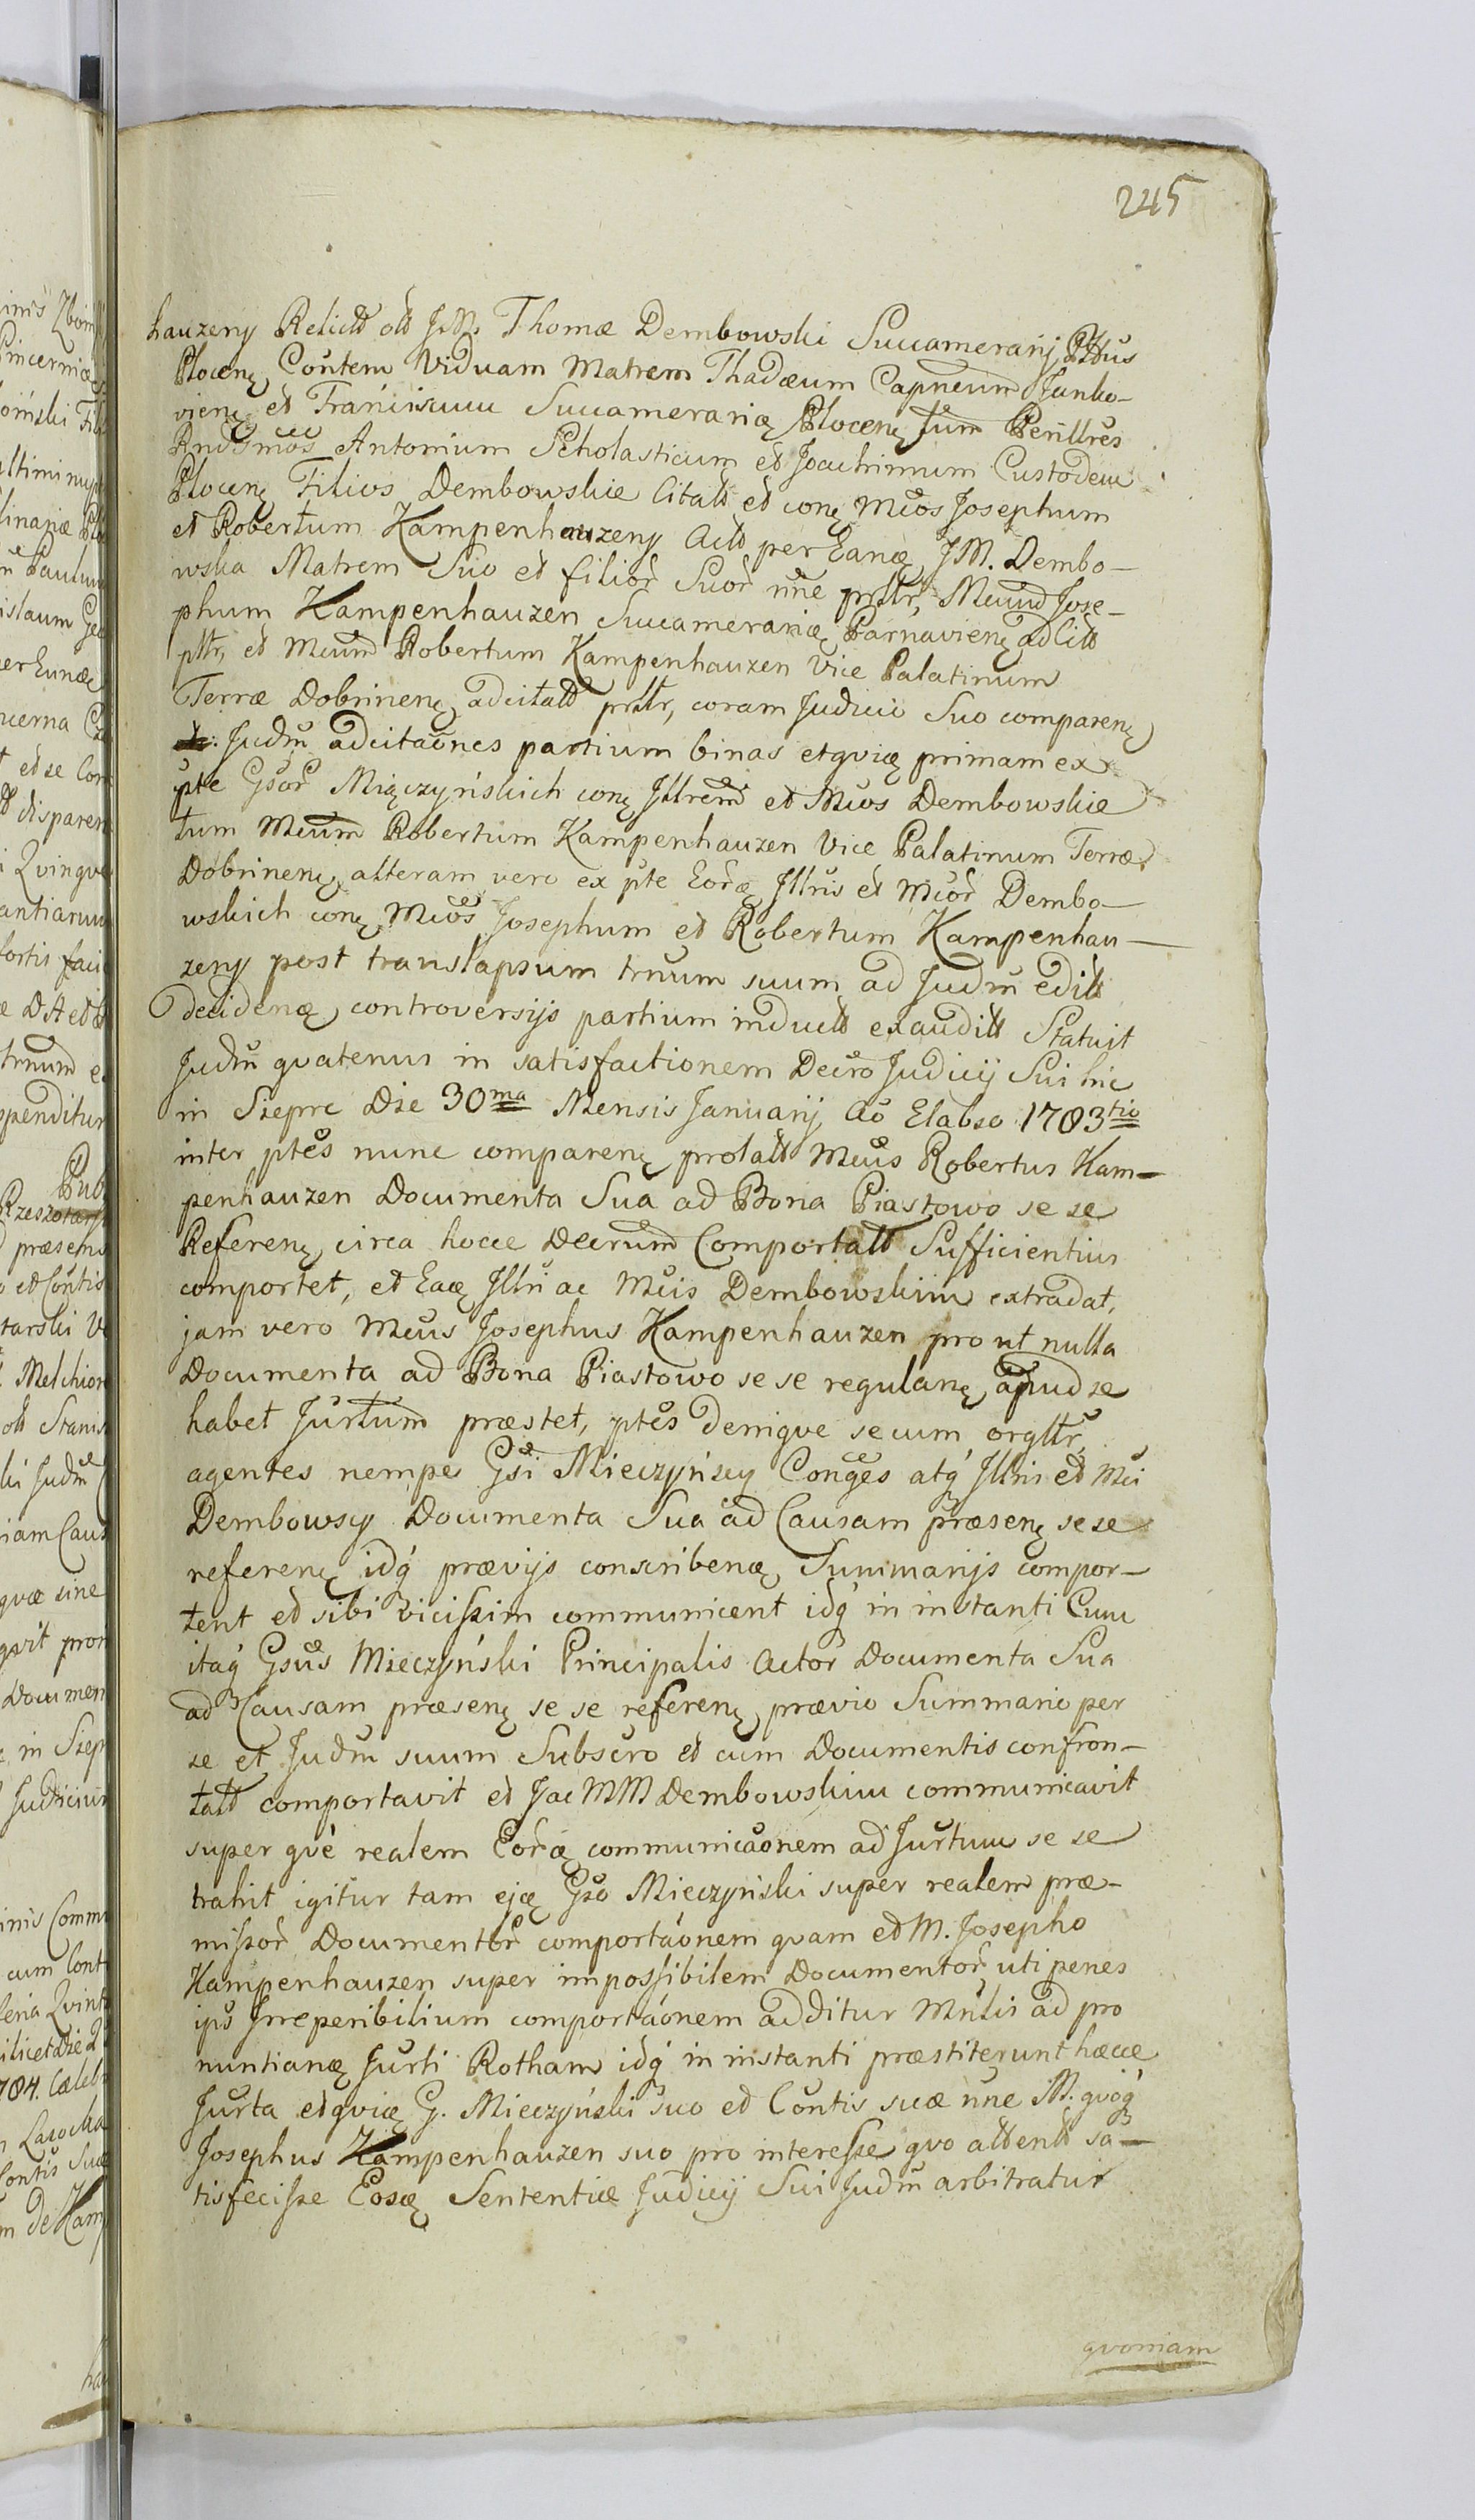 245
hauzeny Relictt olt J.M. Thomæ Dembowski Succamerarij Pttus
Plocenę Contem Viduam Matrem Thadæum Capneum Janko-
vienę et Franciscum Succamerarię Plocenę tum Perillres
Rndssmos Antonium Scholasticum et Joachimum Custodem
Plocenę Filios Dembowskie Citatt et conę Mcos Josephum
et Robertum Kampenhauzeny Actt per Eandę J M. Dembo-
wska Matrem Suo et filior Suor nne prttr, Mcum Jose-
phum Kampenhauzen Succamerarię Parnavienę ad Citt
pttr, et Mcum Robertum Kampenhauzen Vice Palatinum
Terræ Dobrinenę adcitatt prttr, coram Judicio Suo comparenę
Judm adcitaones partium binas etqvię primam ex
pte Gsor Miączyńskich conę Jllrem et Mcos Dembowskie
tum Mcum Robertum Kampenhauzen Vice Palatinum Terræ
Dobrinenę, alteram vero ex pte Eordę Jllris et Mcor Dembo-
wskich conę Mcos Josephum et Robertum Kampenhau-
zeny post translapsum trnum suum ad Judm editt
decidendę, controversijs partium inductt exauditt Statuit
Judm qvatenus in satisfactionem Decro Judicij Sui hic
in Sieprc Die 30ma Mensis Januarij Ao Elabso 1783tio
inter ptes nunc comparenę prolatt Mcus Robertus Kam-
penhauzen Documenta Sua ad Bona Piastowo se se
Referenę circa hocce Decrum Comportatt Sufficientius
comportet, et Eaę Jllri ac Mcis Dembowskim extradat,
jam vero Mcus Josephus Kampenhauzen pro ut nulla
Documenta ad Bona Piastowo se se regulanę, apud se
habet Jurtum præstet, ptes deniqve secum orgttr,
agentes nempe Gsi Mieczyńscy Conges atq́ Jllris et Mci
Dembowscy Documenta Sua ad Causam præsenę se se
referenę idq́ prævijs conscribendę Summarijs compor-
tent et sibi vicissim communicent idq́ in instanti Cum
itaq́ Gsus Mieczyński Principalis Actor Documenta Sua
ad Causam præsenę se se referenę, prævio Summario per
se et Judm suum Subscro et cum Documentis confron-
tatt comportavit et Jac MM Dembowskim communicavit
super qvé realem Eordę communicaonem ad Jurtum se se
trahit igitur tam ejdę Gso Mieczyński super realem præ-
missor Documentor comportaonem qvam et M. Josepho
Kampenhauzen super impossibilem Documentor, uti penes
ips Jrreperibilium comportaonem additur Mnlis ad pro
nuntiandę Jurti Rotham idq́ in instanti præstiterunt hæcce
Jurta etqvię G. Mieczyński suo et Contis suæ nne M. qvoq́
Josephus Kampenhauzen suo pro interesse qvo attentt sa-
tisfecisse Eosdę Sententiæ Judicij Sui Judm arbitratur
qvoniam